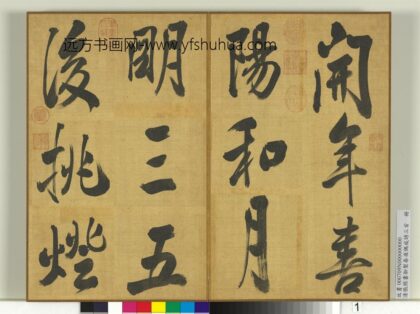 開年喜
陽和月
明三五
後挑燈
远方书画网-www.yfshuhua.com
1